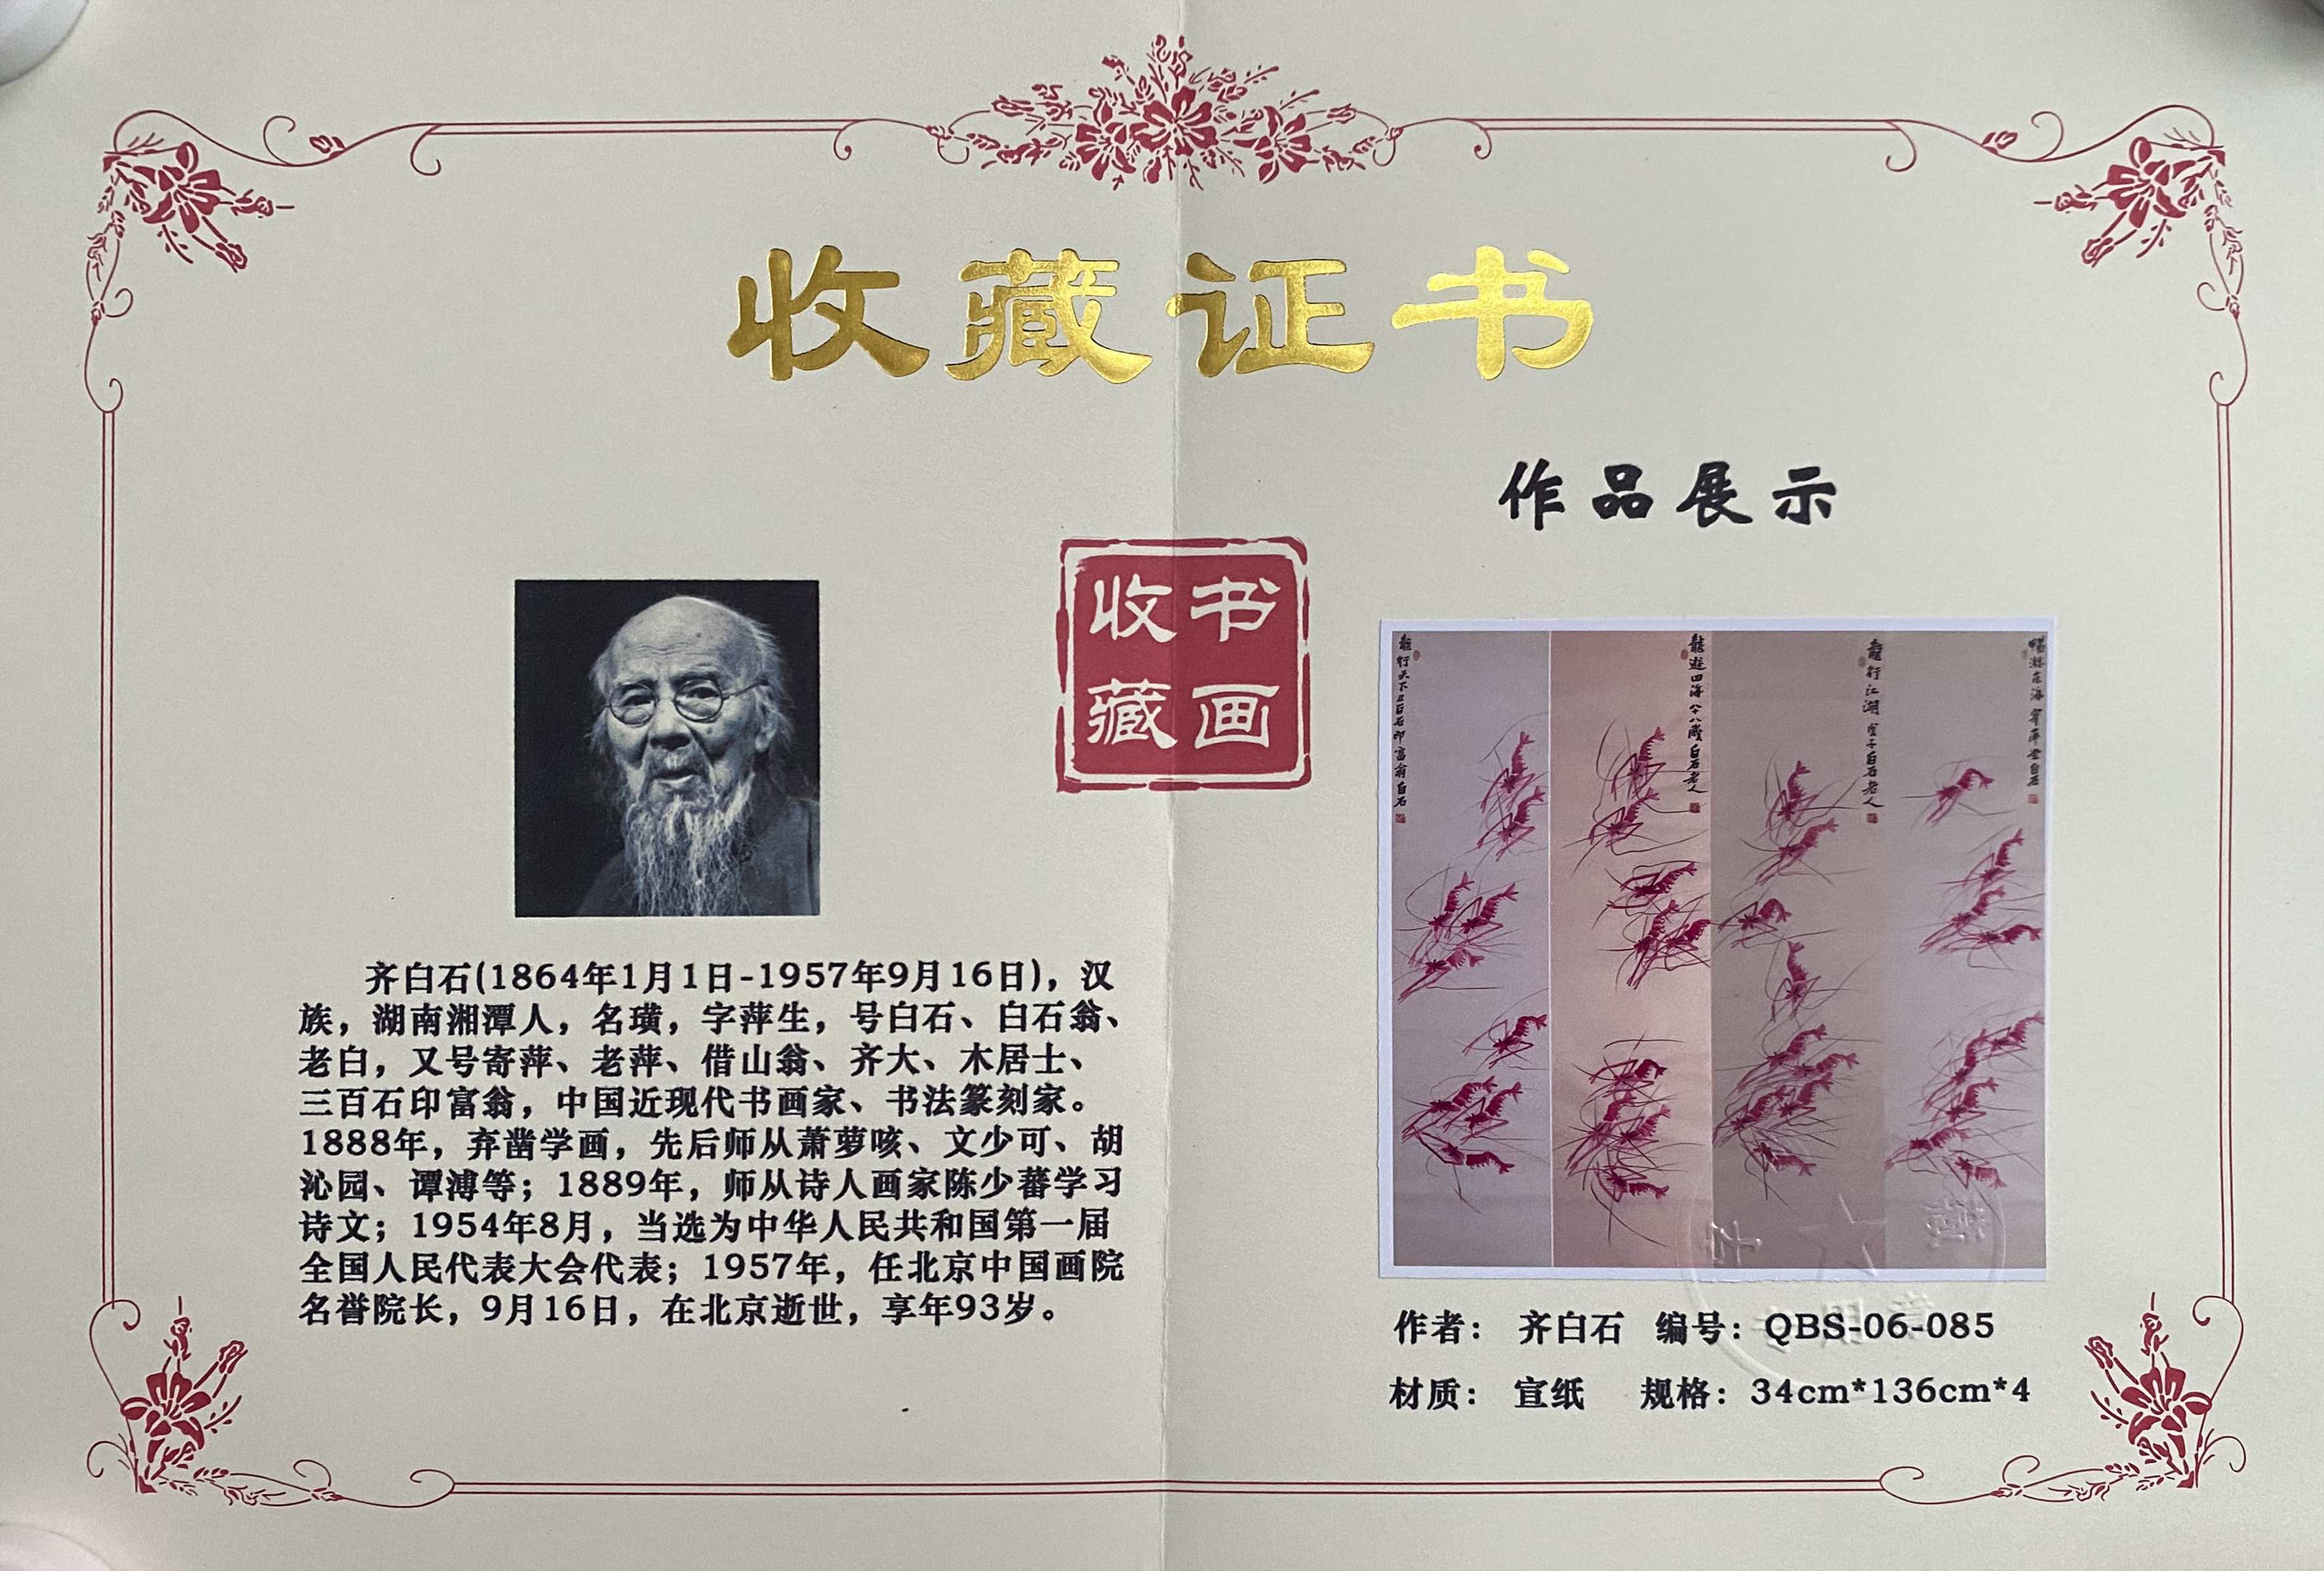 收藏证书
作品展示
书画
收藏
齐白石(1864年1月1日-1957年9月16日)，汉
族，湖南湘潭人，名璜，字萍生，号白石、白石翁、
老白，又号寄萍、老萍、借山翁、齐大、木居士、
三百石印富翁，中国近现代书画家、书法篆刻家。
1888年，弃凿学画，先后师从萧萝咳、文少可、胡
沁园、谭溥等；1889年，师从诗人画家陈少蕃学习
诗文；1954年8月，当选为中华人民共和国第一届
全国人民代表大会代表；1957年，任北京中国画院
名誉院长，9月16日，在北京逝世，享年93岁。
龍行天下三百石印富翁白石
龍遊四海八十八歲白石老人
龍行江湖 白石老人
暢游東海 寄萍堂白石
作者： 齐白石 编号：QBS-06-085
材质： 宣纸 规格：34cm*136cm*4